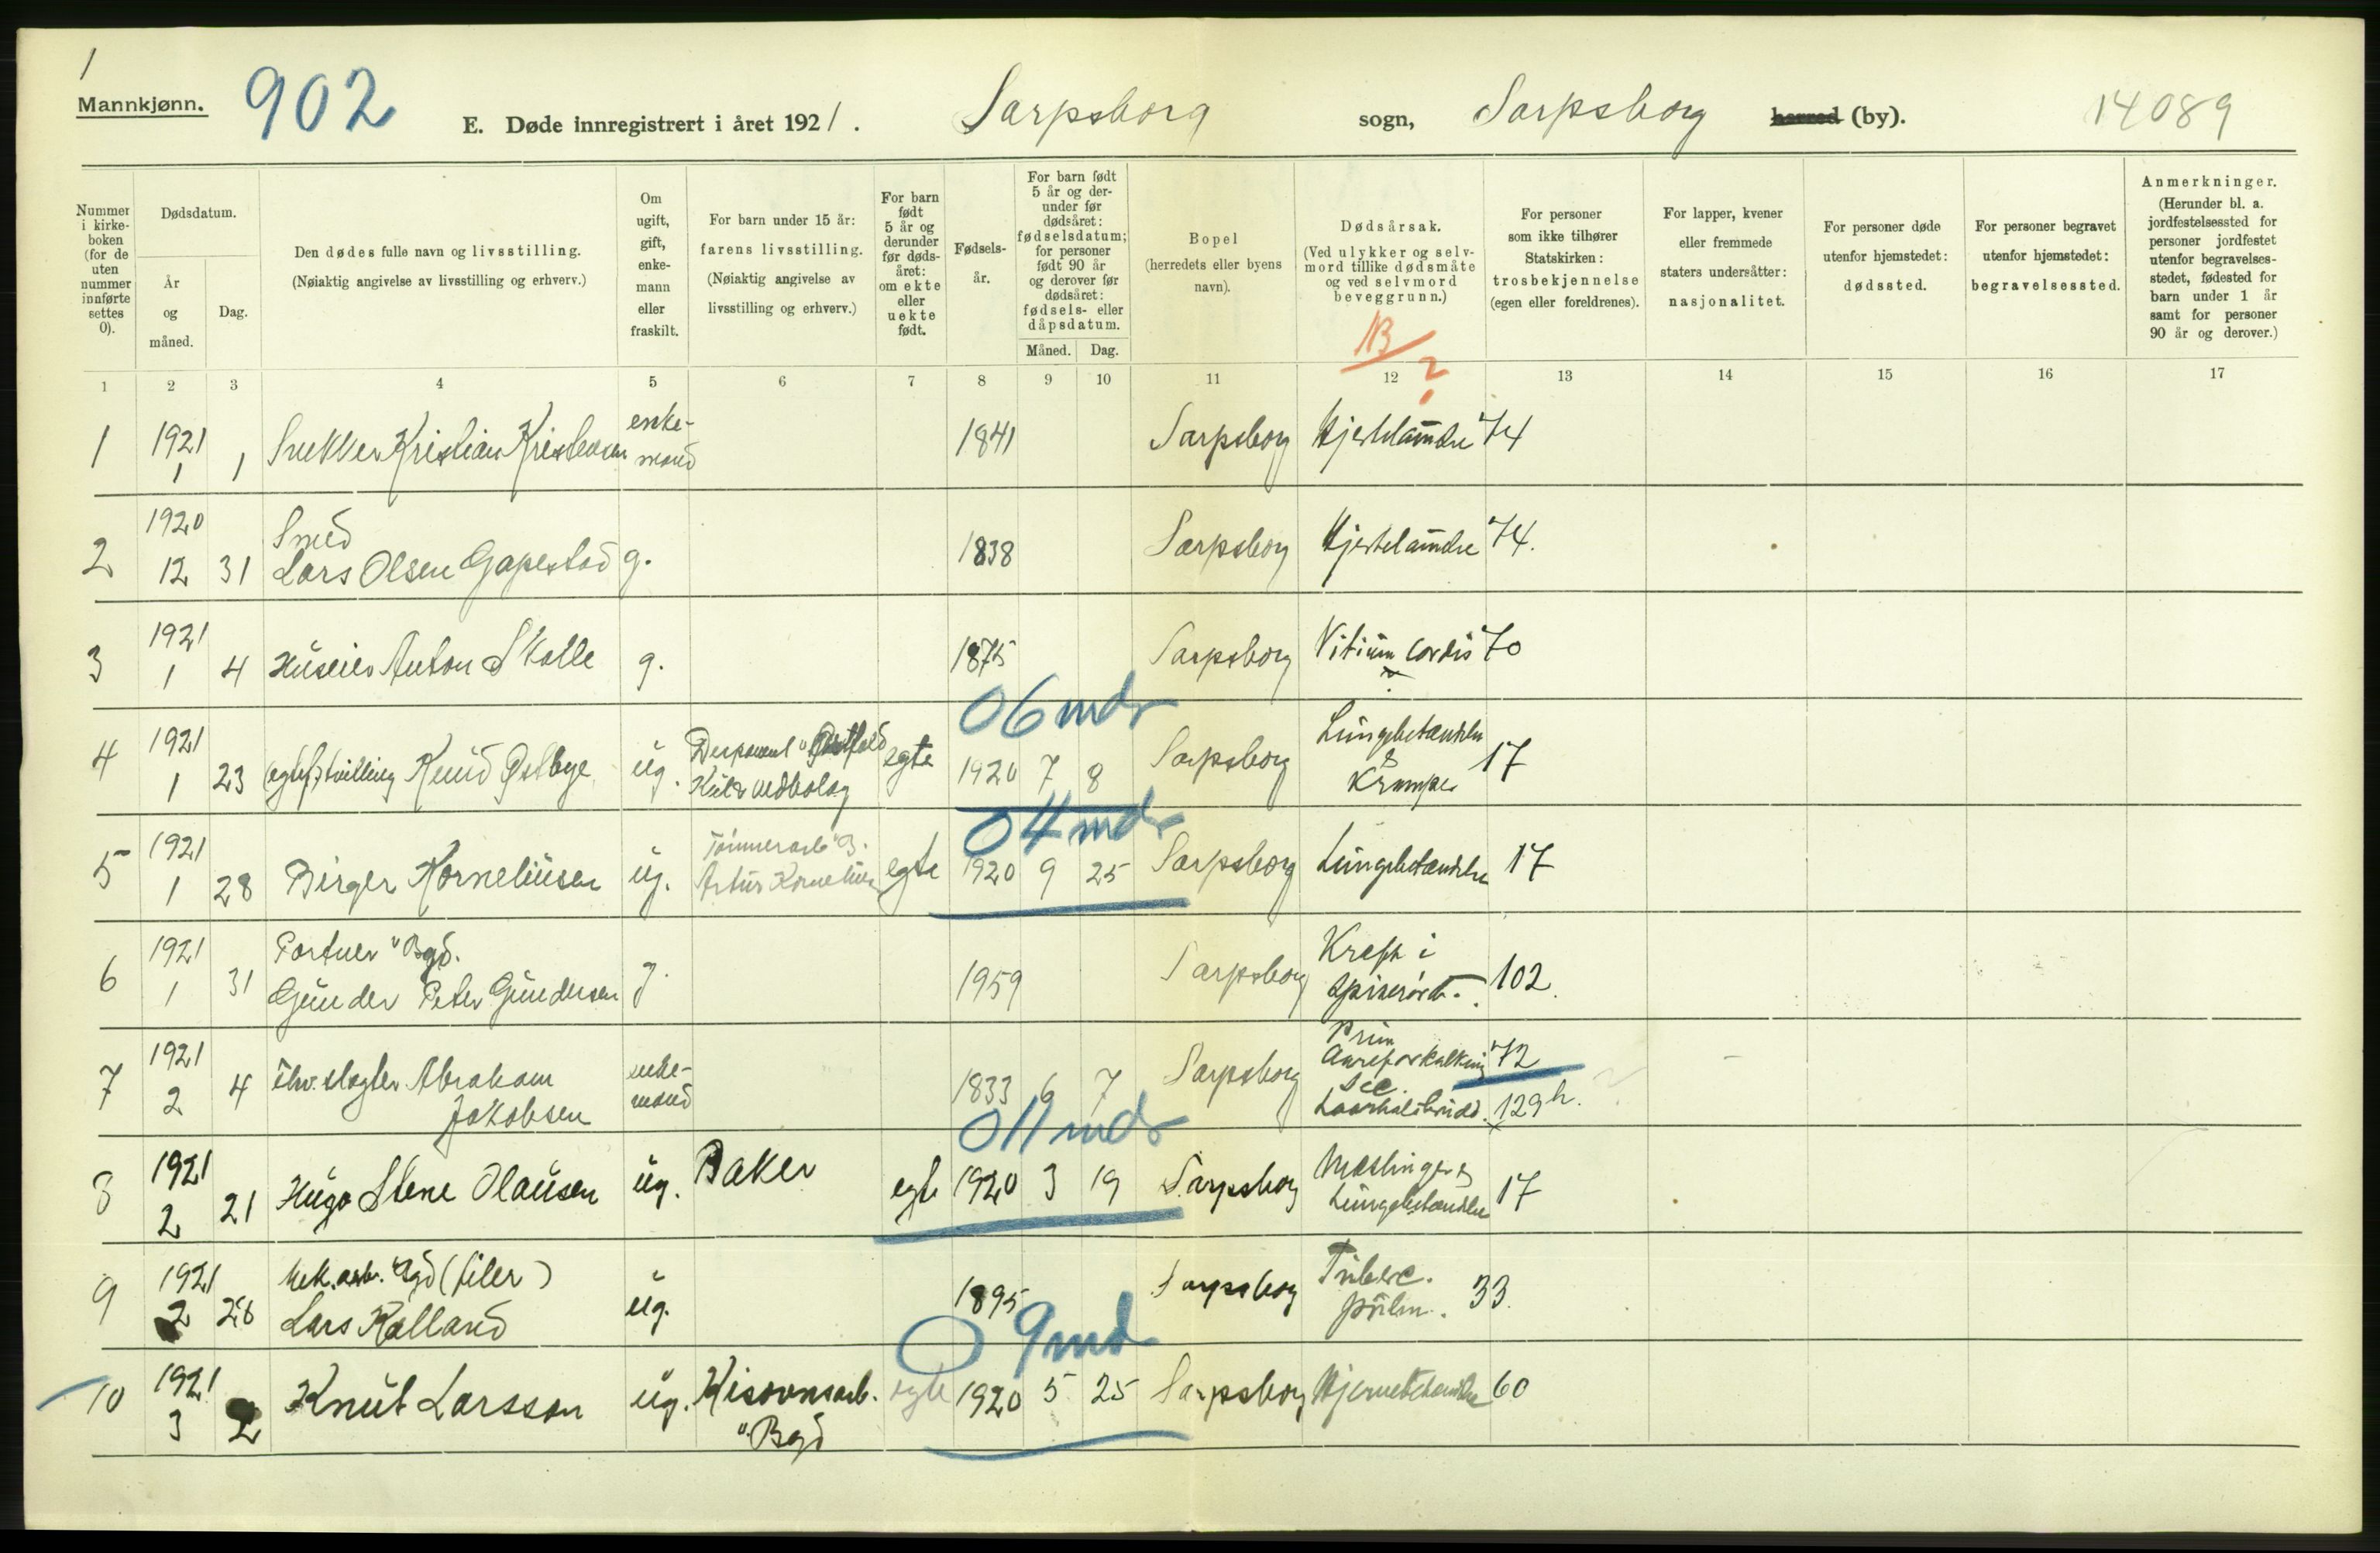 1
Mannkjønn.
902
E. Døde innregistrert i året 1921.
Sarpsborg sogn, Sarpsborg herred (by).
14089
Nummer i kirke-boken (for de uten nummer innførte settes 0).
Dødsdatum.
År og måned.
Dag.
Den dødes fulle navn og livsstilling.
(Nøiaktig angivelse av livsstilling og erhverv.)
Om ugift, gift, enke-mann eller fraskilt.
For barn under 15 år:
farens livsstilling.
(Nøiaktig angivelse av livsstilling og erhverv.)
For barn født 5 år og derunder før døds-året: om ekte eller uekte født.
Fødsels-år.
For barn født 5 år og der-under før dødsåret: fødselsdatum; for personer født 90 år og derover før dødsåret: fødsels- eller dåpsdatum.
Måned. Dag.
Bopel
(herredets eller byens navn).
Dødsårsak.
(Ved ulykker og selv-mord tillike dødsmåte og ved selvmord beveggrunn.)
For personer som ikke tilhører Statskirken: trosbekjennelse (egen eller foreldrenes).
For lapper, kvener eller fremmede staters undersåtter: nasjonalitet.
For personer døde utenfor hjemstedet: dødssted.
For personer begravet utenfor hjemstedet: begravelsessted.
Anmerkninger.
(Herunder bl. a. jordfestelsessted for personer jordfestet utenfor begravelses-stedet, fødested for barn under 1 år samt for personer 90 år og derover.)
1 2 3 4 5 6 7 8 9 10 11 12 13 14 15 16 17
1 1921 1 1 Snekker Kristian Kristensen enke-mand 1841 Sarpsborg 74
2 1920 12 31 Smed
Lars Olsen Gapestad g. 1838 Sarpsborg 74.
3 1921 1 4 Huseier Anton Skolle g. 1875 Sarpsborg Vitium cordis 70
06 mdr
4 1921 1 23 tvilling Knud Østbye ug. egte 1920 7 8 Sarpsborg Lungebetændelse & Krampe 17
04 mdr
5 1921 1 28 Birger Korneliusen ug. egte 1920 9 25 Sarpsborg Lungebetændelse 17
6 1921 1 31 Portner Bgd.
Gunder Peter Gundersen g. 1959 Sarpsborg Kreft i spiserør 102.
7 1921 2 4 Abraham
Jakobsen enke-mand 1833 6 7 Sarpsborg Prim Aareforkalkning 72
129 h.
011 mdr
8 1921 2 21 Hugo Stene Olausen ug. Baker egte 1920 3 19 Sarpsborg Mæslinger & Lungebetændelse 17
9 1921 2 28 Mek. arb. Bgd (filer)
Lars Kalland ug. 1895 Sarpsborg Tuberc. pulm. 33.
09 md
10 1921 3 2 Knut Larsson ug. Kisovnsarb.
Bgd egte 1920 5 25 Sarpsborg 60